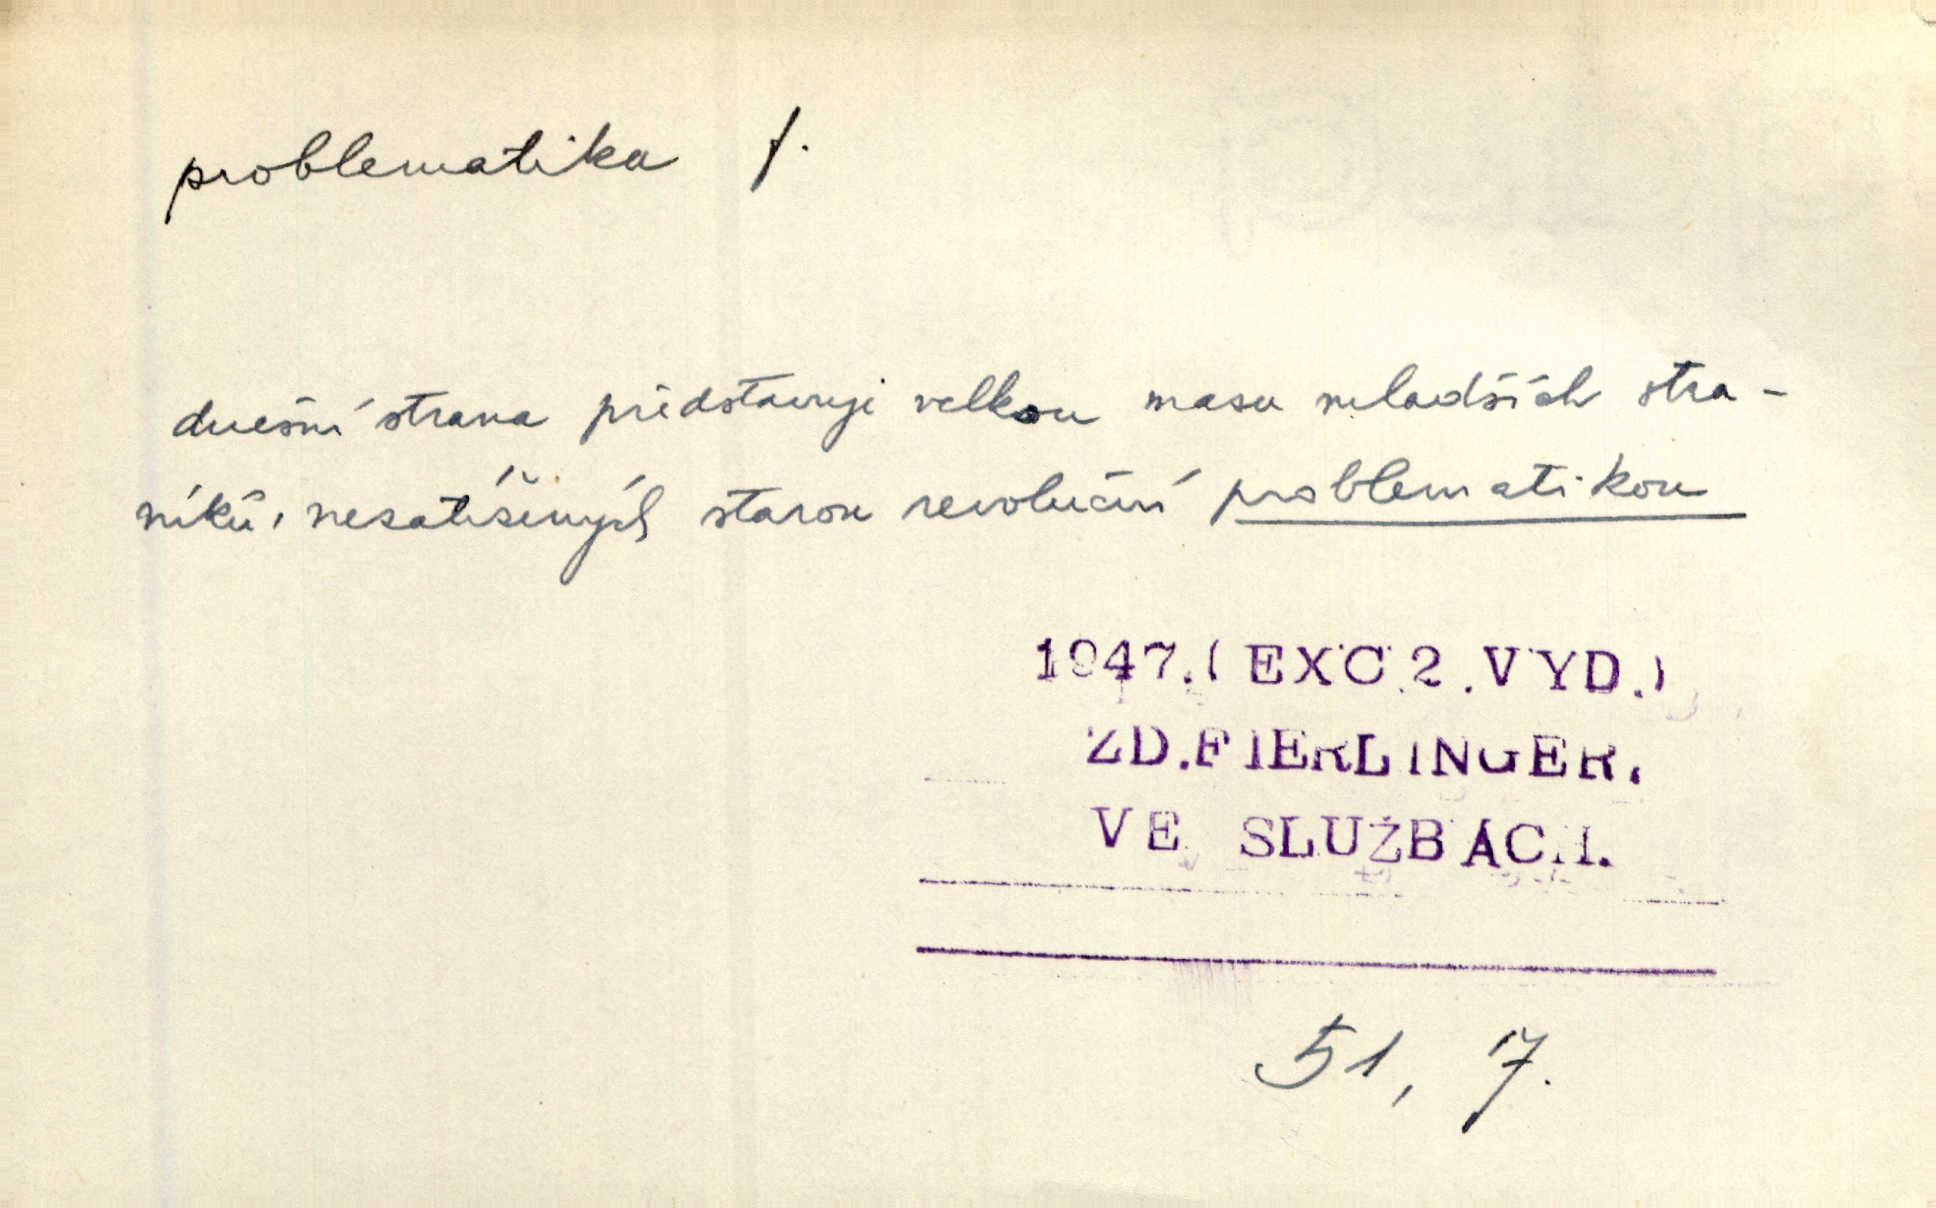 problematika f.
dnešní strana představuje velkou masu mladších stra-
níků, nezatížených starou revoluční problematikou
1947.(EXC.2.VYD.)
ZD.FIERLINGER.
VE SLUŽBÁCH.
51, 7.